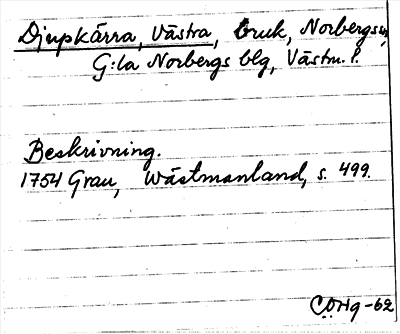 Djupkärra, Västra, bruk, Norbergs sn,
G:la Norbergs blg, Västm. l.
Beskrivning.
1754 Grau, Wästmanland, s. 499.
-62